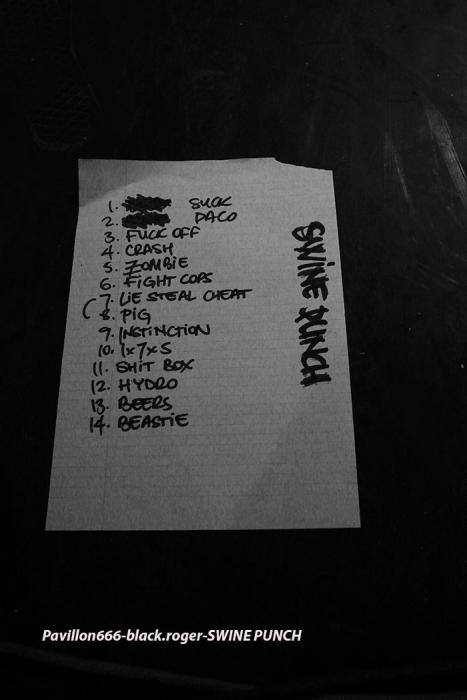 1. SUCK
2. DACO
3. FUCK OFF
4. CRASH
5. ZOMBIE
6. FIGHT COPS
7. LIE STEAL CHEAT
8. PIG
9. INSTINCTION
10. 1x7x5
11. SHIT BOX
12. HYDRO
13. BEERS
14. BEASTIE
SWINE PUNCH
Pavillon666-black.roger-SWINE PUNCH